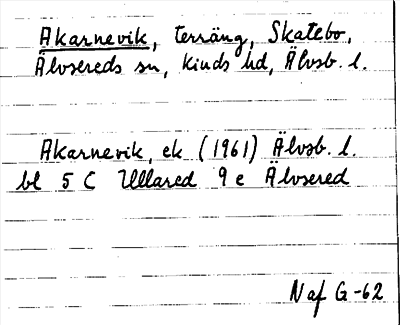 Akarnevik, terräng, Skatebo,
Älvsereds sn, Kinds hd, Älvsb. l.
Akarnevik, ek (1961) Älvsb. l.
bl 5 C Ullared 9 e Älvsered
Naf G-62